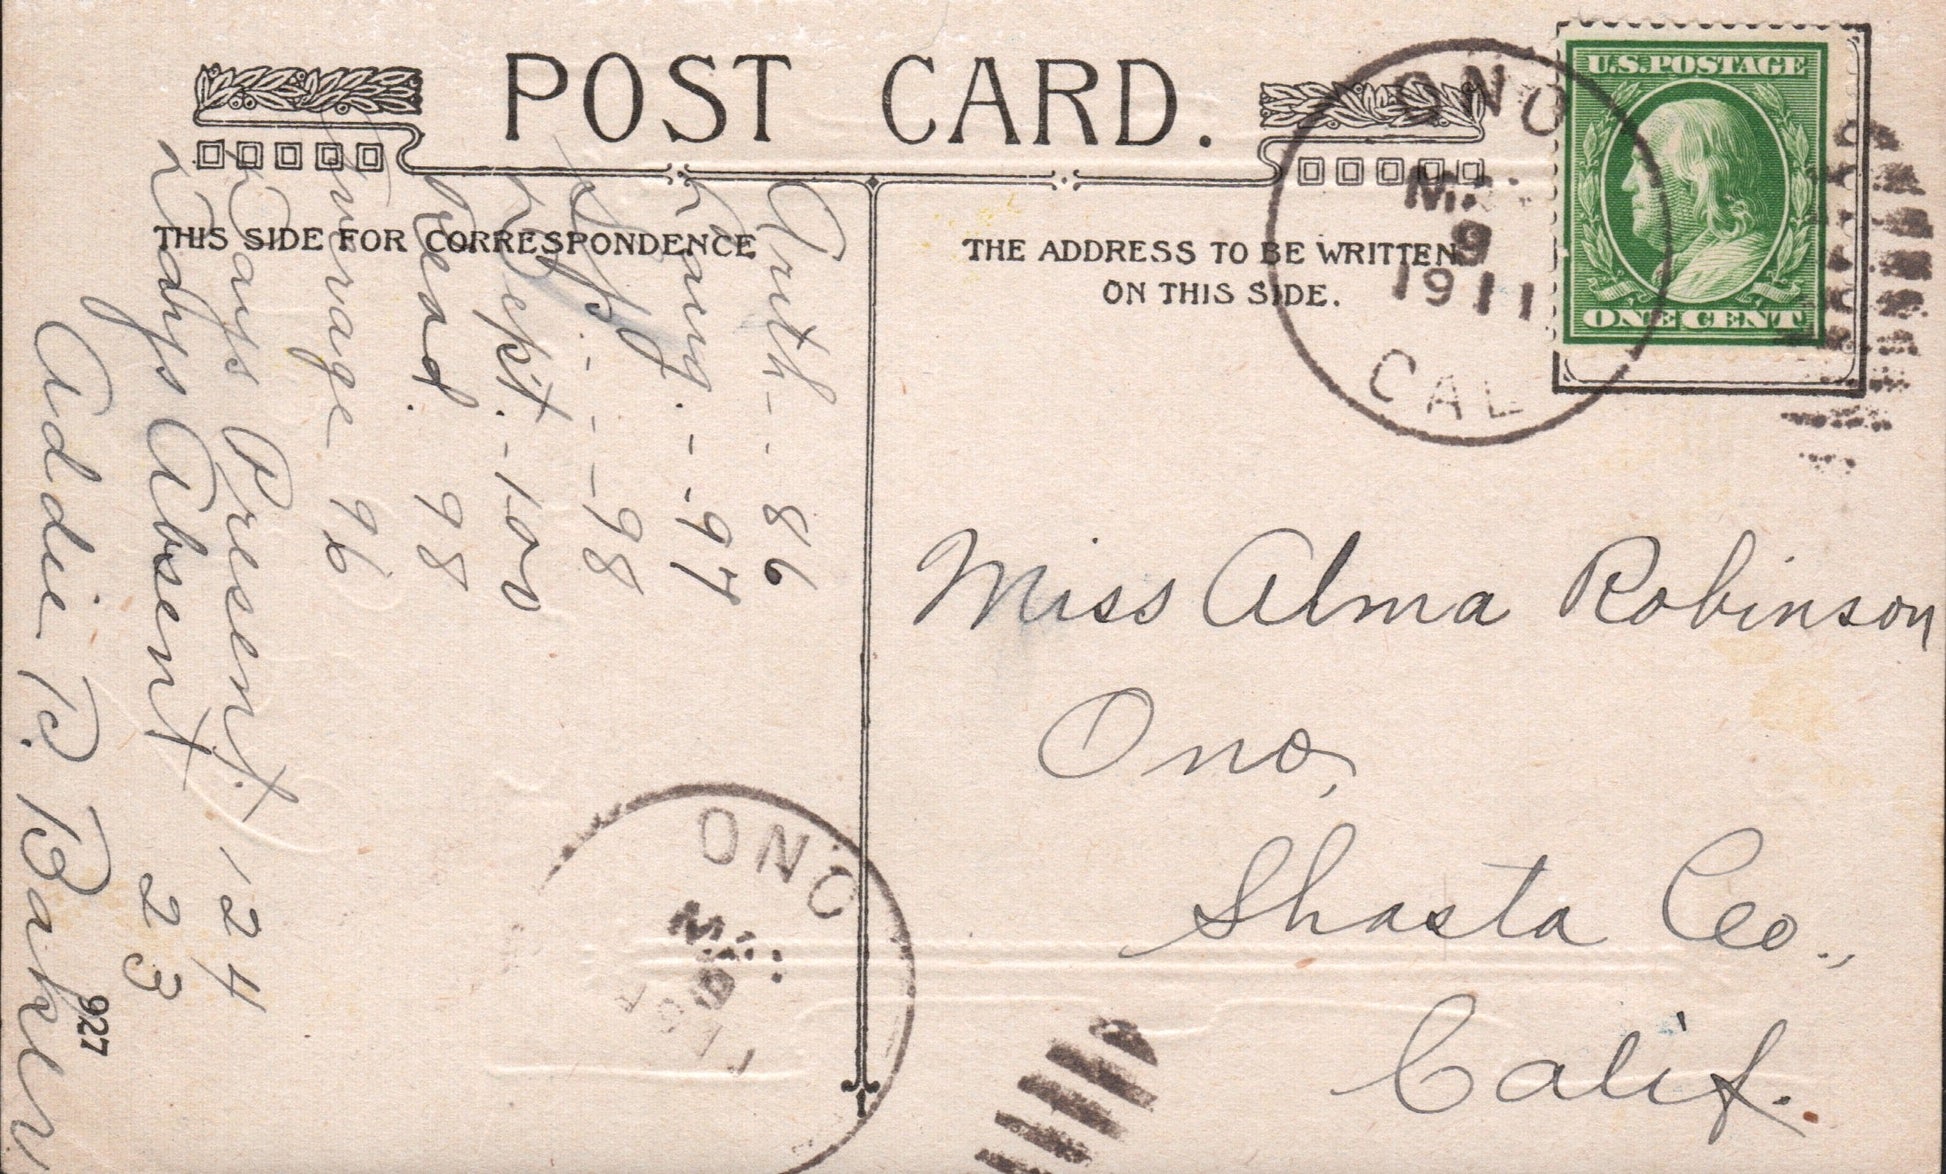 POST CARD.
THIS SIDE FOR CORRESPONDENCE
THE ADDRESS TO BE WRITTEN
ON THIS SIDE.
U.S. POSTAGE
ONE CENT
ONO
9
1911
CAL
Arith - - 86
Lang. - - 97
- - - 98
Dept. - 100
Read. 98
Avrage 96
Days Present. 124
Days Absent 23
Addie P. Baker
Miss Alma Robinson
Ono,
Shasta Co.,
Calif.
ONO
927